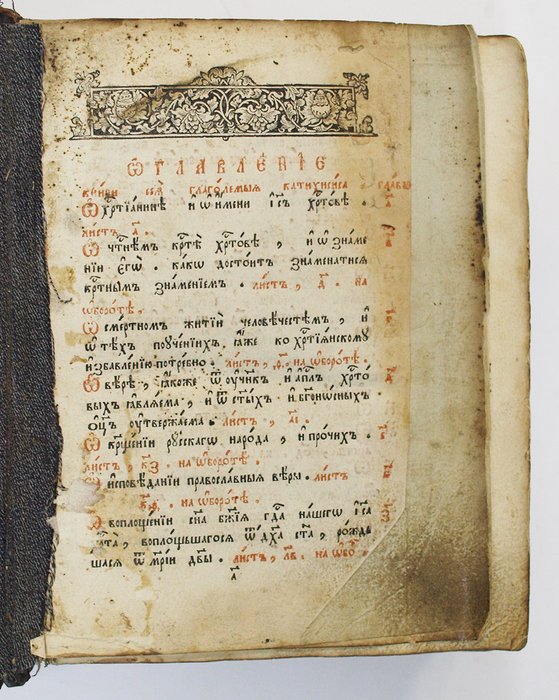 Ѡ҆ГЛАВЛЕ́НЇЕ
кни́ги сеѧ̀ глаго́лемыѧ катихи́сиса. главы̀
Ѡ хрⷭ҇тїа́нинѣ и҆ ѡ҆ и҆́мени і҆с҃ъ хрⷭ҇то́вѣ . а҃
ли́стъ, а҃.
Ѡ чⷭ҇тнѣ́мъ крⷭ҇тѣ̀ хрⷭ҇то́вѣ , и҆ ѡ҆ зна́ме
нїи є҆гѡ̀. ка́кѡ досто́итъ зна́менатисѧ
крⷭ҇тнымъ зна́менїемъ. ли́стъ, д҃. на
ѡ҆боро́тѣ.
Ѡ сме́ртномъ житїѝ человѣ́честѣмъ , и҆
ѡ҆ тѣ́хъ поуче́нїихъ, ꙗ҆́же ко хрⷭ҇тїѧ́нскому
и҆збавле́нїю потре́бно. ли́стъ, ѳ҃. на ѡ҆боро́тѣ.
Ѡ вѣ́рѣ , ꙗ҆́коже ѿ ᲂу҆чн҃къ и҆ а҆пⷭ҇лъ хрⷭ҇то́
выхъ ꙗ҆влѧ́ема , и҆ ѿ ст҃ы́хъ. и҆ бг҃оно́сныхъ
ѻ҆ц҃ъ ᲂу҆твержа́ема. ли́стъ, а҃і.
Ѡ кр҃ще́нїи рꙋ́сскагѡ наро́да , и҆ про́чихъ .
ли́стъ, к҃з. на ѡ҆боро́тѣ.
Ѡ и҆сповѣ́данїи правосла́вныѧ вѣ́ры. ли́стъ
к҃ѳ. на ѡ҆боро́тѣ.
Ѡ воплоще́нїи сн҃а бж҃їѧ гдⷭ҇а на́шегѡ і҆с҃а
хрⷭ҇та̀ , воплощьшагосѧ ѿ дх҃а ст҃а , ро́ждь
шасѧ ѿ мр҃і́и дв҃ы. ли́стъ, л҃в. на ѡ҆боⷬ҇.
а҃